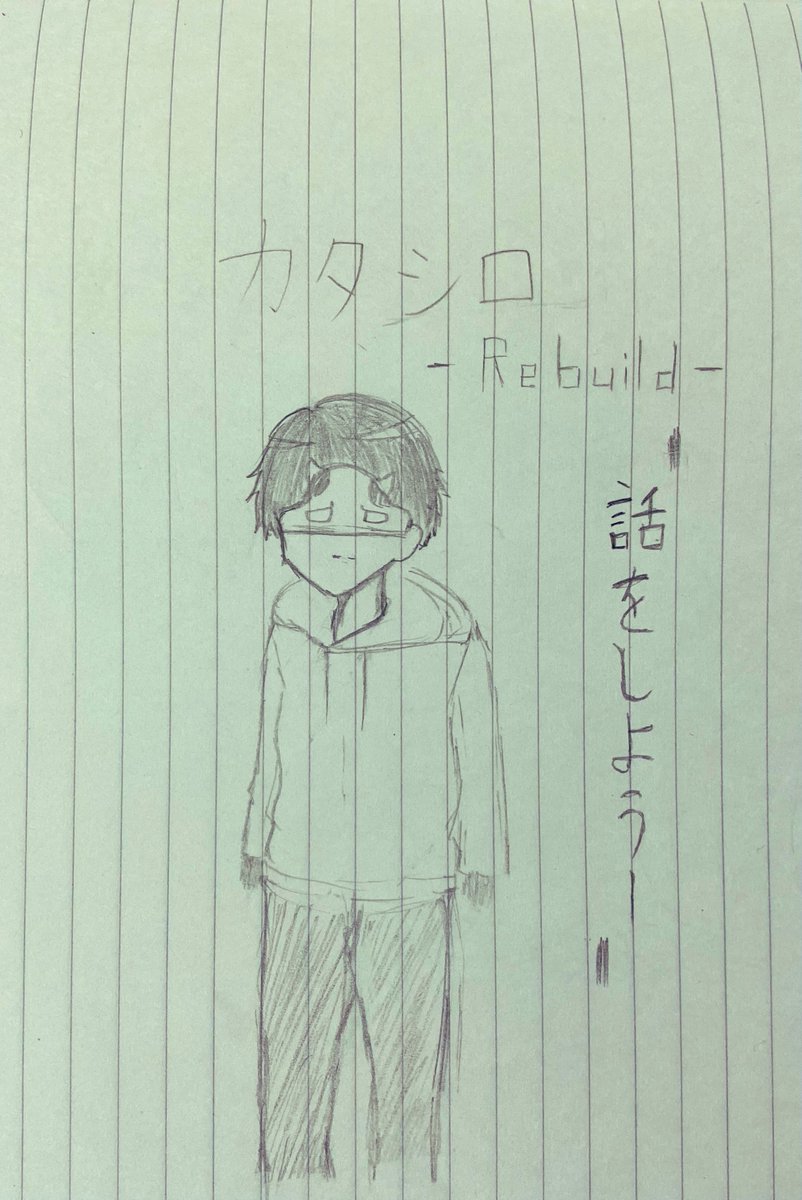 カタシロ
-Rebuild-
話をしよう―